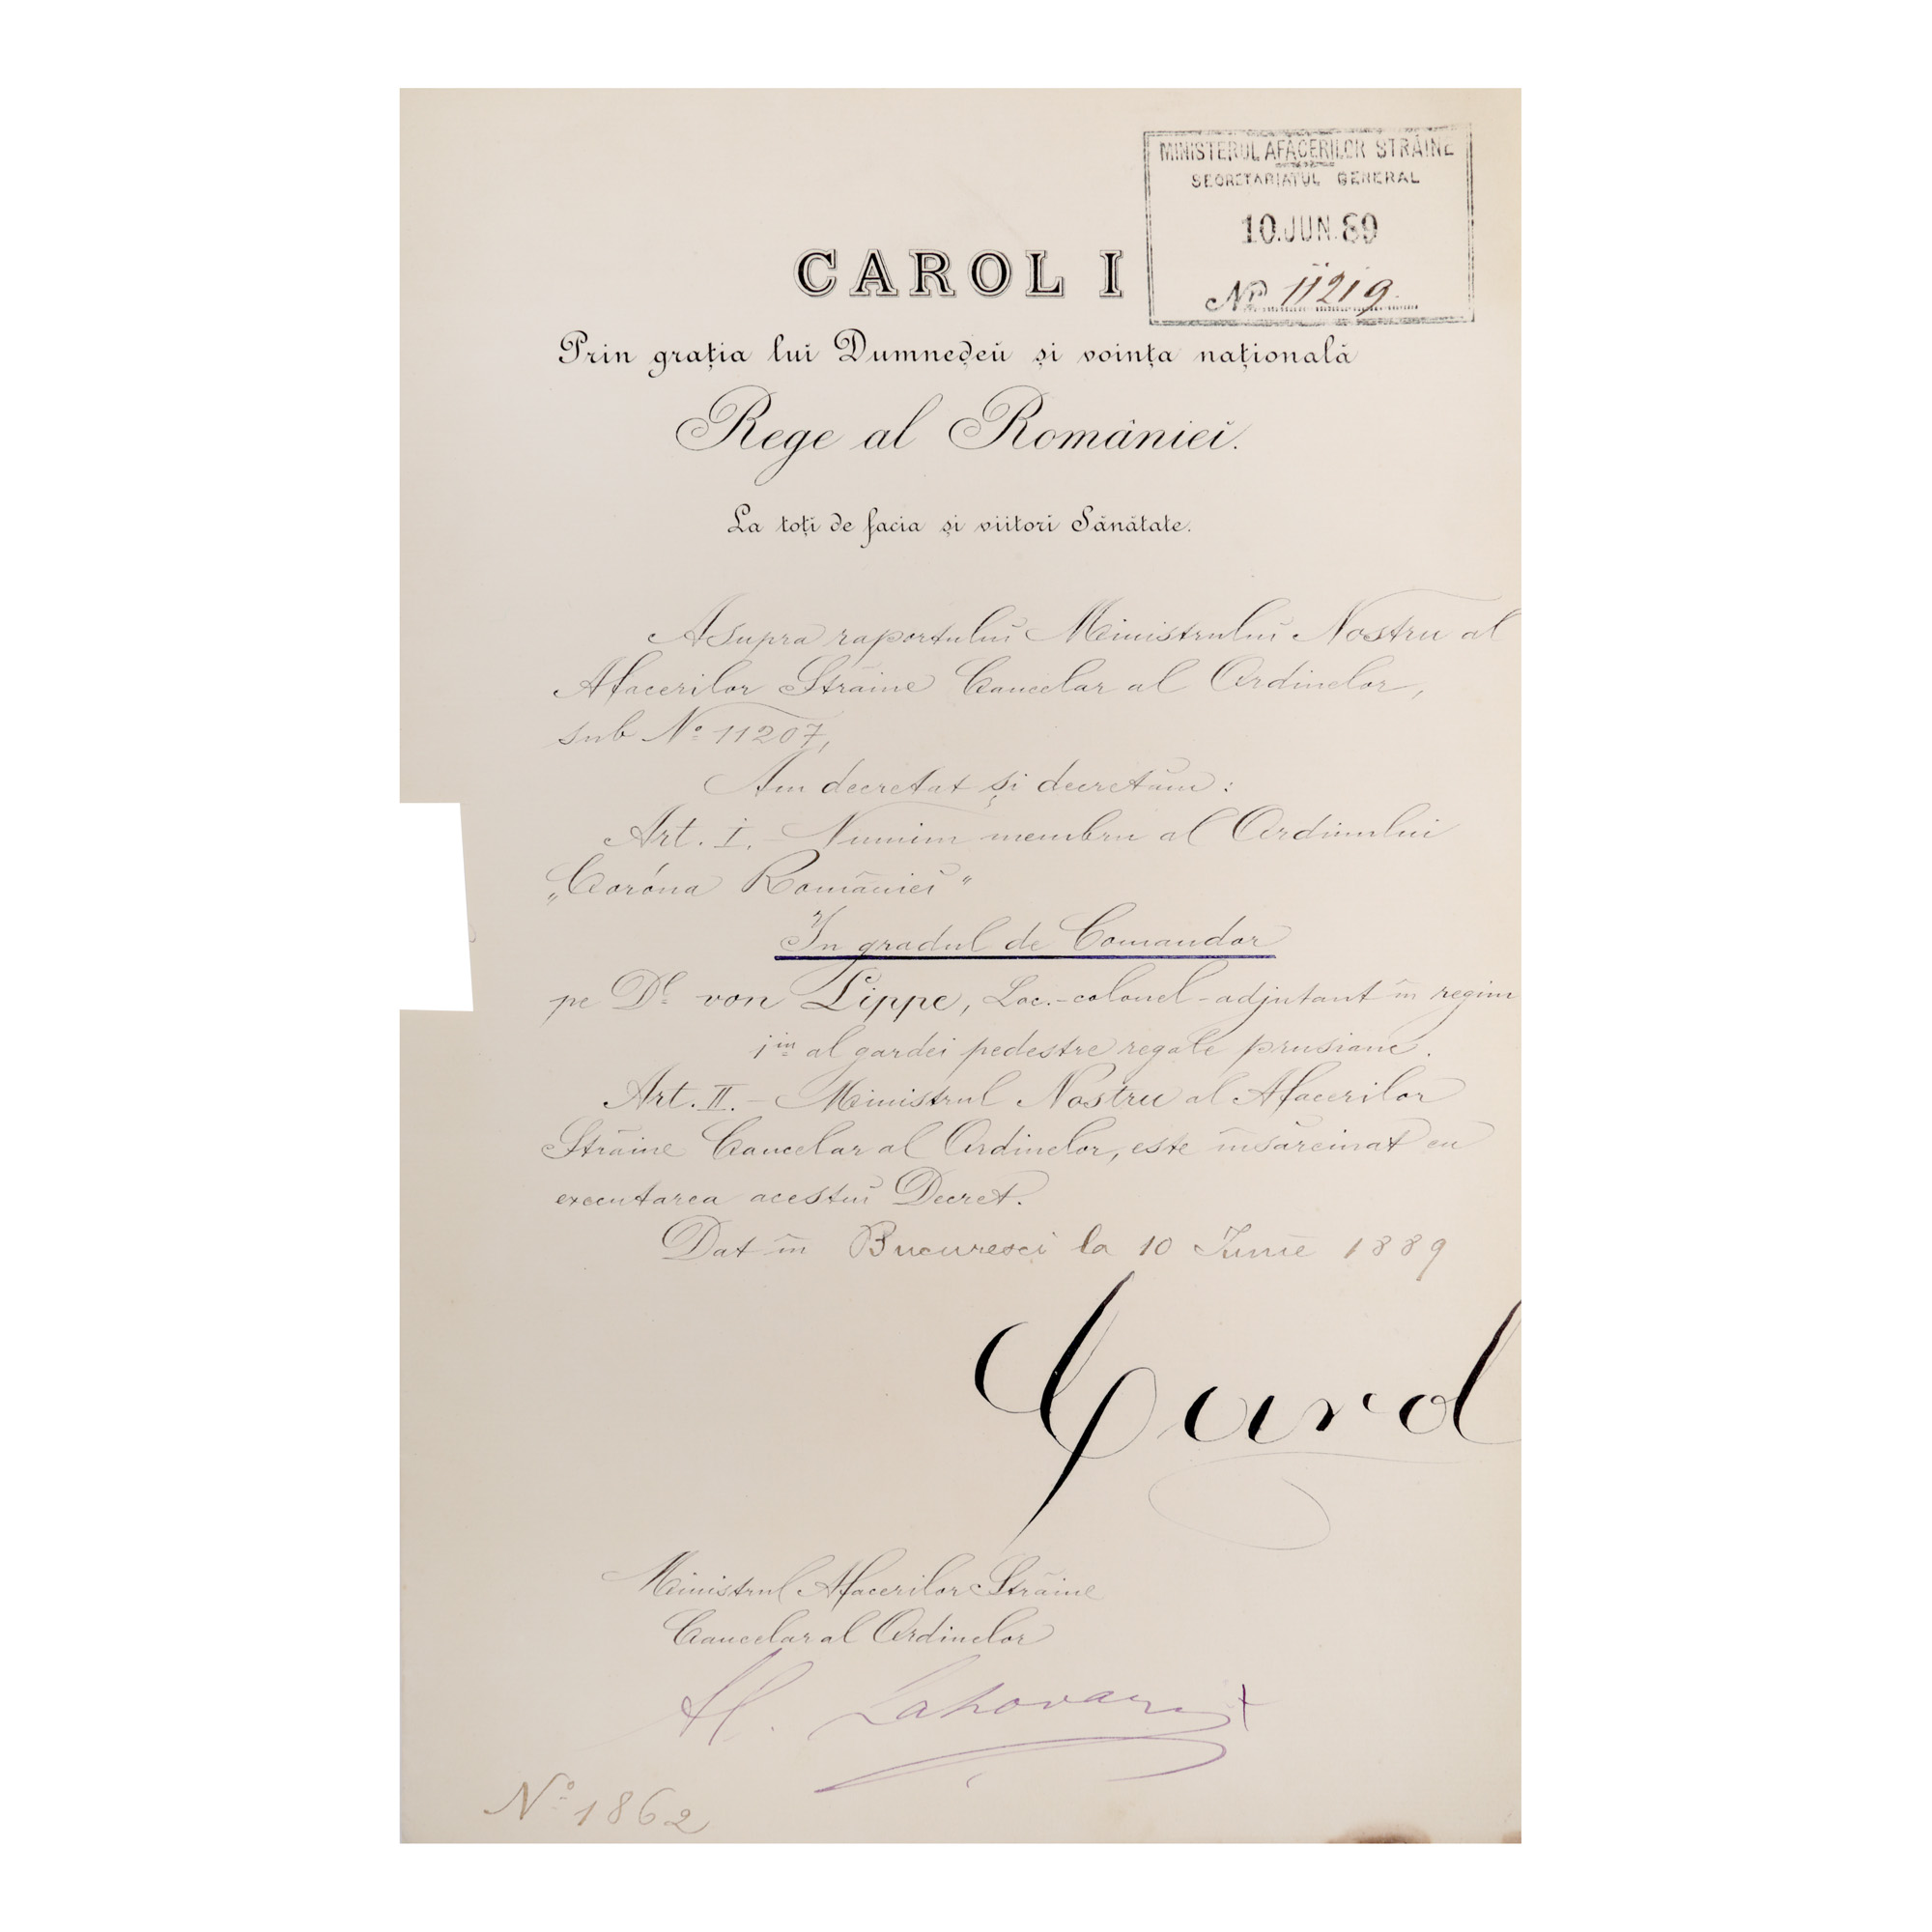 MINISTERUL AFACERILOR STRĂINE
SECRETARIATUL GENERAL
10.JUN.89
No 11219
CAROL I
Prin grația lui Dumneḑeŭ și voința națională
Rege al Românieĭ.
La toțĭ de facia și viitorĭ Sănătate.
Asupra raportuluĭ Ministruluĭ Nostru al
Afacerilor Străine Cancelar al Ordinelor,
sub No 11207,
Am decretat și decretăm:
Art. I. – Numim membru al Ordinului
„Coróna Românieĭ"
În gradul de Comandor
pe Dl von Lippe, Loc.-colonel-adjutant în regim
1iu al gardei pedestre regale prusiane.
Art. II. – Ministrul Nostru al Afacerilor
Străine Cancelar al Ordinelor, este însărcinat cu
executarea acestuĭ Decret.
Dat în Bucurescĭ la 10 Iunie 1889
Carol
Ministrul Afacerilor Străine
Cancelar al Ordinelor
Al. Lahovari
No 1862